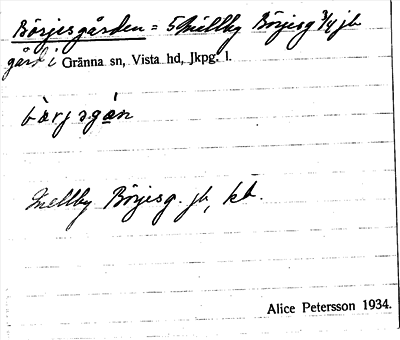 Börjesgården = 5 Mellby Börjesg 3/4 jb
gård i Gränna sn, Vista hd, Jkpg. l.
bàrjsgán
Mellby Börjesg. jb, kb.
Alice Petersson 1934.